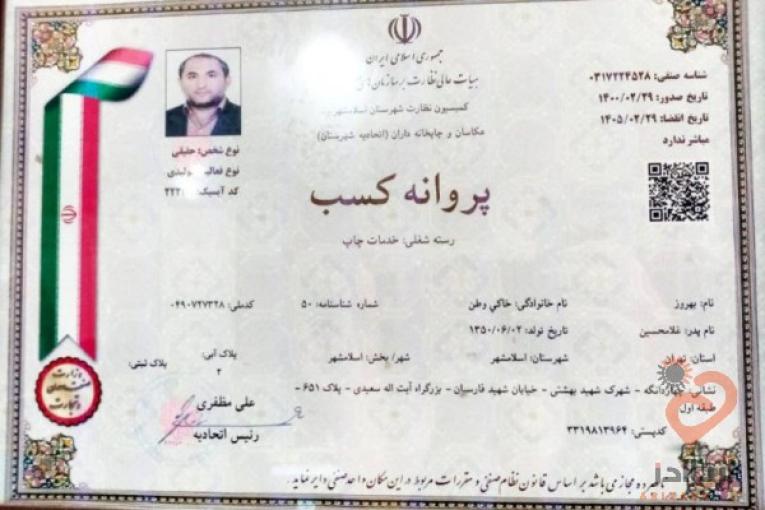 جمهوری اسلامی ایران
هیات عالی نظارت بر سازمان‌های
کمیسیون نظارت شهرستان اسلامشهر
عکاسان و چاپخانه داران (اتحادیه شهرستان)
شناسه صنفی: ۰۳۱۷۲۲۴۵۲۸
تاریخ صدور: ۱۴۰۰/۰۲/۲۹
تاریخ انقضا: ۱۴۰۵/۰۲/۲۹
مباشر ندارد
نوع شخص: حقیقی
نوع فعالیت: تولیدی
کد آیسیک:
پروانه کسب
رسته شغلی: خدمات چاپ
نام: بهروز نام خانوادگی: خاکی وطن شماره شناسنامه: ۵۰ کدملی: ۰۴۹۰۷۲۷۳۲۸
نام پدر: غلامحسین تاریخ تولد: ۱۳۵۰/۰۶/۰۲
استان: تهران شهرستان: اسلامشهر شهر/ بخش: اسلامشهر پلاک آبی: ۲ پلاک ثبتی:
نشانی: چهاردانگه - شهرک شهید بهشتی - خیابان شهید فارسیان - بزرگراه آیت اله سعیدی - پلاک ۶۵۱ -
طبقه اول
کدپستی: ۳۳۱۹۸۱۳۹۶۴
علی مظفری
رئیس اتحادیه
وزارت
صنعت، معدن
و تجارت
مجاز می باشد بر اساس قانون نظام صنفی و مقررات مربوط در این مکان واحد صنفی دایر نماید.